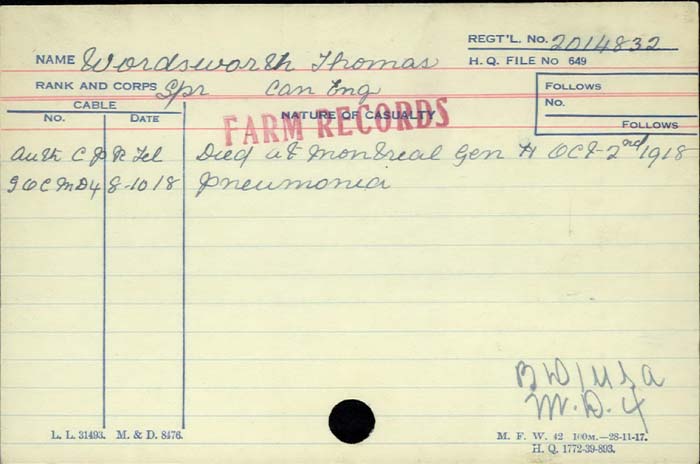 REGT'L. No. 2014832
NAME Wordsworth Thomas
H. Q. FILE No 649
RANK AND CORPS Spr Can Eng
FOLLOWS
No.
FOLLOWS
CABLE
No. DATE
NATURE OF CASUALTY
FARM RECORDS
Auth C P R Tel Died at Montreal Gen H Oct 2nd 1918
G O C M D 4 8-10 18 Pneumonia
B D / U S A
M. D. 4
L. L. 31493. M. & D. 8476.
M. F. W. 42 100M.—28-11-17.
H. Q. 1772-39-893.